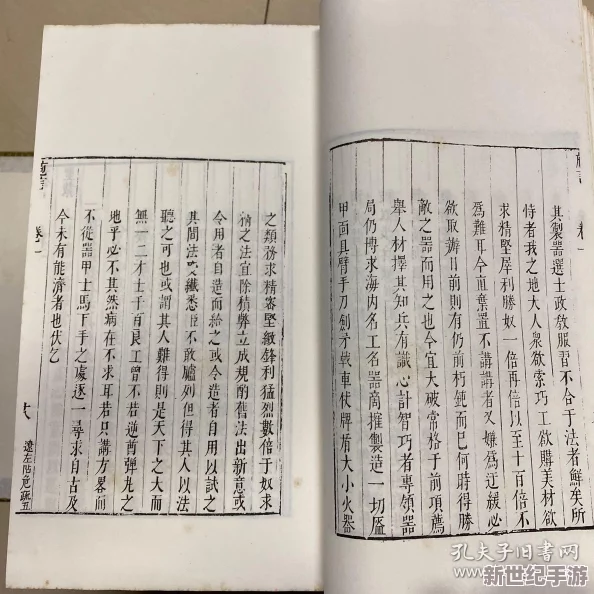 其製器選士政敎服習不合于法者鮮矣所
恃者我之地大人衆欲索巧工欲購美材欲
求精堅犀利勝奴一倍再倍以至十百倍不
爲難耳今直棄置不講講者又嫌爲迂緩必
欲取辦目前則有仍前朽鈍而已何時得勝
敵之器而用之也今宜大破常格于前項薦
舉人材擇其知兵有識心計智巧者專領器
局仍博求海内名工名器商搉製造一切盔
甲面具臂手刀劍矛戟車仗牌盾大小火器
卷一
之類務求精審堅緻鋒利猛烈數倍于奴求
之法宜除積弊立成規酌舊法出新意或
令用者自造而給之或令造者自用以試之
其間法纖悉臣不敢臚列但得其人以法
聽之可也或謂其人難得則是天下之大而
無一二才士千百良工曾不若逆酋彈丸之
地乎必不其然病在不求耳若只講方畧而
不從器甲士馬下手之處逐一尋求自古及
今未有能濟者也伏乞
卷一
六
遼左阽危疏五
孔夫子旧书网
新世纪手游